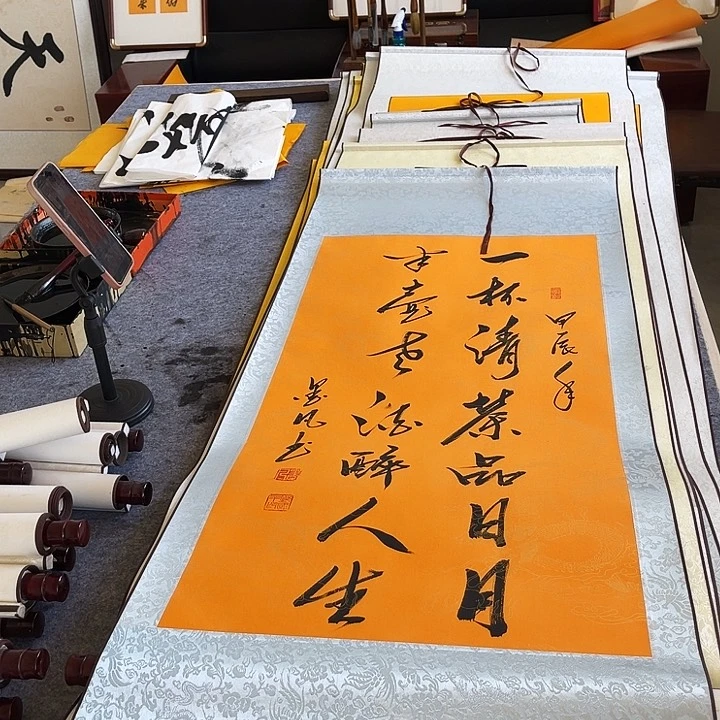 甲辰年
一杯清茶品日月
半壺老酒醉人生
墨凡书
天